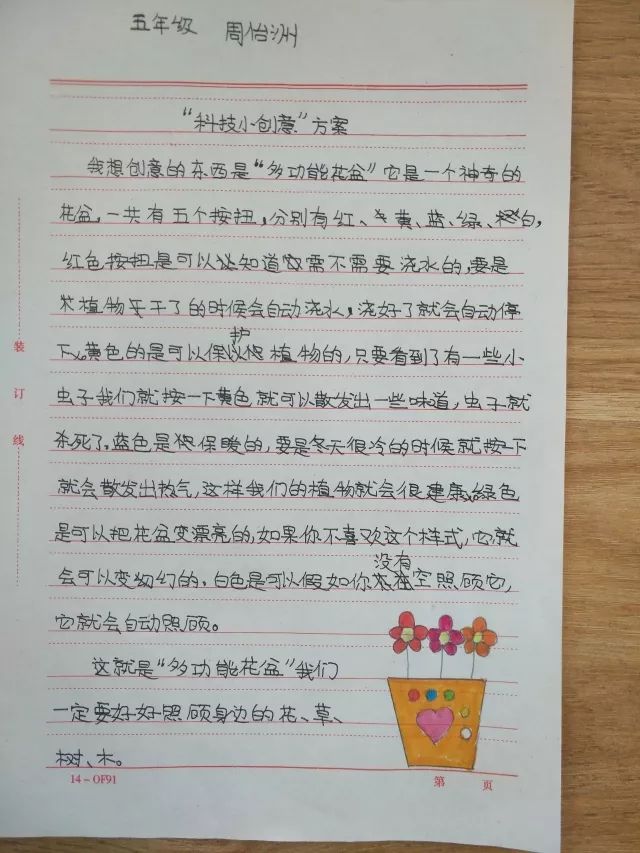 五年级 周怡洲
“科技小创意”方案
我想创意的东西是“多功能花盆”它是一个神奇的
花盆,一共有五个按扭,分别有红、黄、蓝、绿、白,
红色按扭是可以知道需不需要浇水的,要是
植物干了的时候会自动浇水,浇好了就会自动停
下。黄色的是可以保护植物的,只要看到了有一些小
虫子我们就按一下黄色就可以散发出一些味道,虫子就
杀死了。蓝色是保暖的,要是冬天很冷的时候就按一下
就会散发出热气,这样我们的植物就会很建康。绿色
是可以把花盆变漂亮的,如果你不喜欢这个样式,它就
会可以变幻的。白色是可以假如你没有空照顾它,
它就会自动照顾。
这就是“多功能花盆”我们
一定要好好照顾身边的花、草、
树、木。
装
订
线
14-OF91 第 页